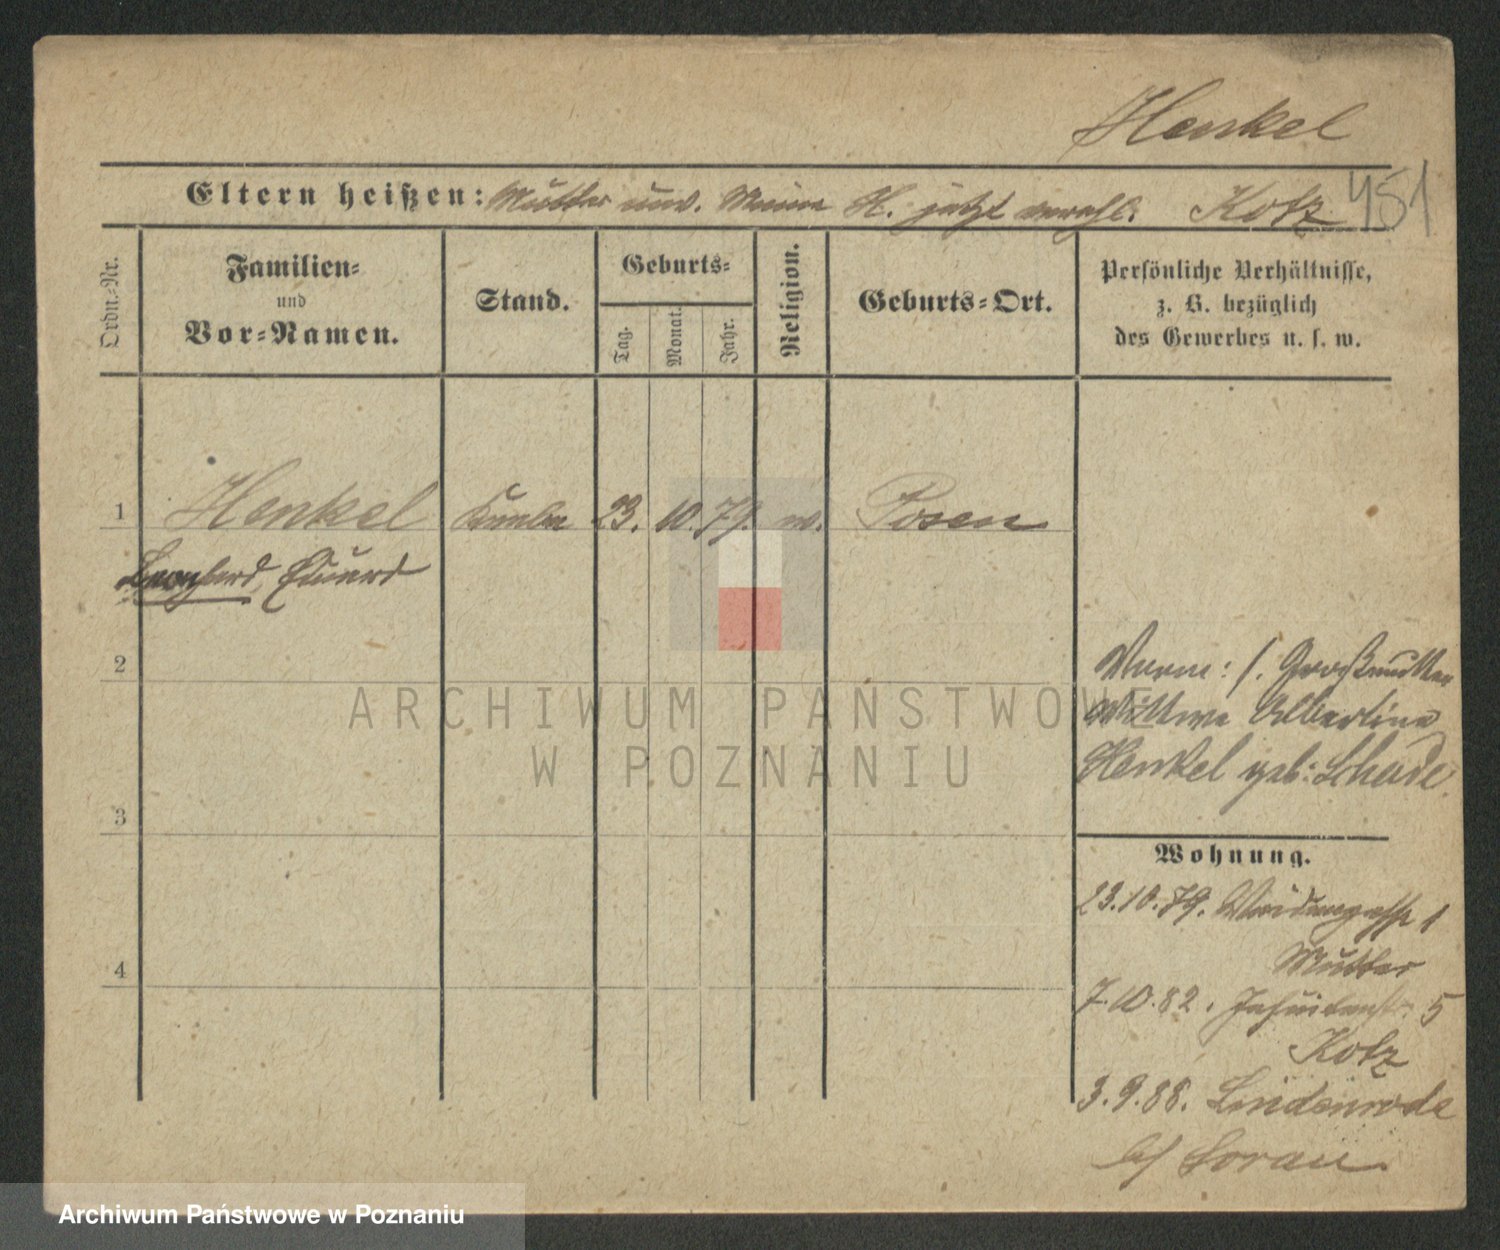 Henkel
Eltern heißen: Mutter unv. Minna H. jetzt verehl. Kotz 451
Ordn.-Nr.
Familien-
und
Vor-Namen.
Stand.
Geburts-
Tag.
Monat.
Jahr.
Religion.
Geburts-Ort.
Persönliche Verhältnisse,
z. B. bezüglich
des Gewerbes u. s. w.
1 Henkel Knabe 23. 10. 79. Posen
Eduard
2
3
4
Vorm: s. Großmutter
Wittwe Albertine
Henkel geb: Schade
Wohnung.
23.10.79. Weidengasse 1
Mutter
7.10.82. Jesuitenstr. 5
Kotz
3.9.88. Lindenrode
b/ Sorau.
ARCHIWUM PAŃSTWOWE
W POZNANIU
Archiwum Państwowe w Poznaniu